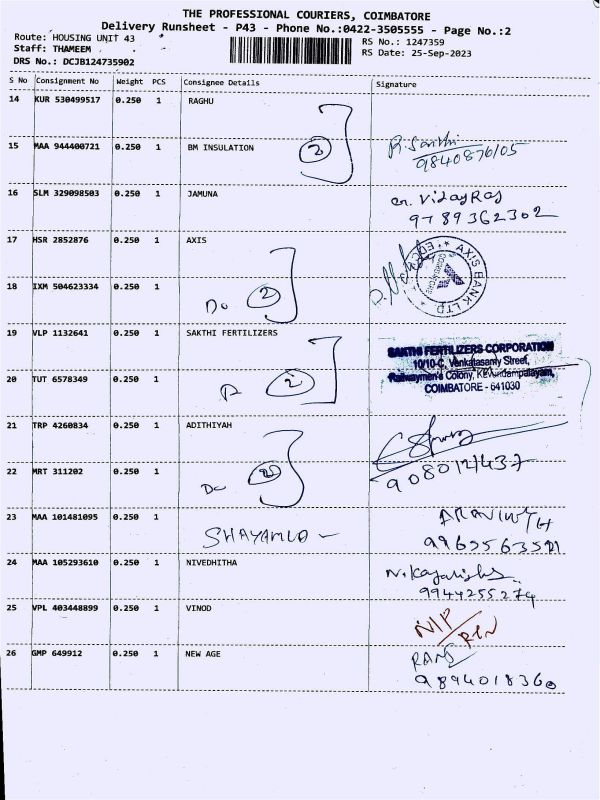 THE PROFESSIONAL COURIERS, COIMBATORE
Delivery Runsheet - P43 - Phone No.:0422-3505555 - Page No.:2
Route: HOUSING UNIT 43
RS No.: 1247359
Staff: THAMEEM
RS Date: 25-Sep-2023
DRS No.: DCJB124735902
S No Consignment No Weight PCS Consignee Details Signature
14 KUR 530499517 0.250 1 RAGHU
15 MAA 944400721 0.250 1 BM INSULATION 2 R. Santhi
9840876105
16 SLM 329098503 0.250 1 JAMUNA
9789362302
17 HSR 2852876 0.250 1 AXIS
AXIS BANK LTD
18 IXM 504623334 0.250 1 Do 2
19 VLP 1132641 0.250 1 SAKTHI FERTILIZERS
SAKTHI FERTILIZERS CORPORATION
10/10-C, Venkatasamy Street,
Railwaymen's Colony, 
COIMBATORE - 641030
20 TUT 6578349 0.250 1 2
21 TRP 4260834 0.250 1 ADITHIYAH
22 MRT 311202 0.250 1 Do 2
23 MAA 101481095 0.250 1 SHAYAMLA
24 MAA 105293610 0.250 1 NIVEDHITHA
9944255274
25 VPL 403448899 0.250 1 VINOD N/P/RTN
26 GMP 649912 0.250 1 NEW AGE
9894018360